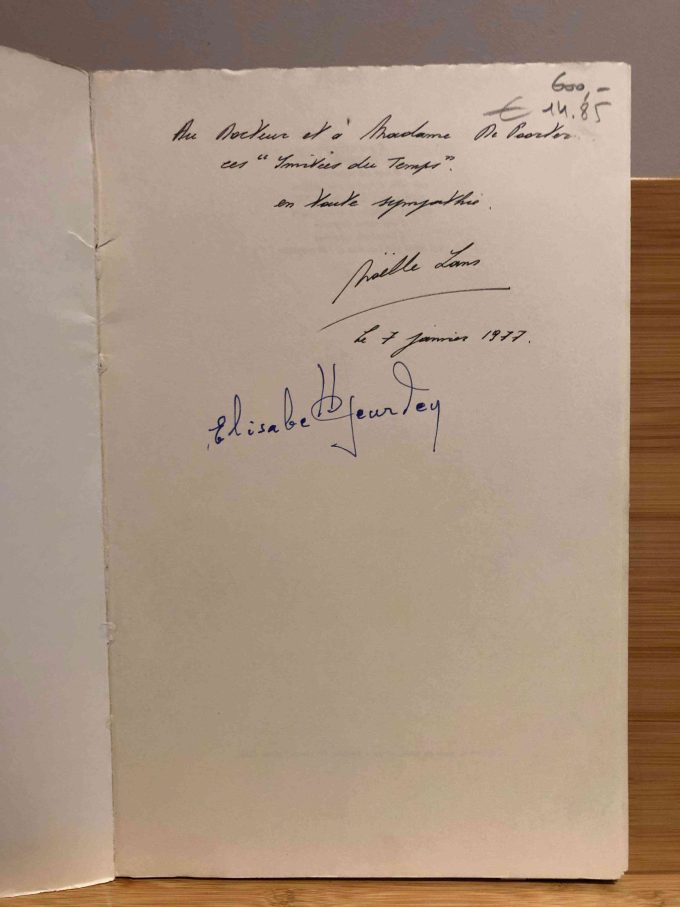 600,-
€ 14.85
Au Docteur et à Madame De Poorter
ces " du Temps".
en toute sympathie.
Noëlle Lans
Le 7 janvier 1977.
Elisabeth